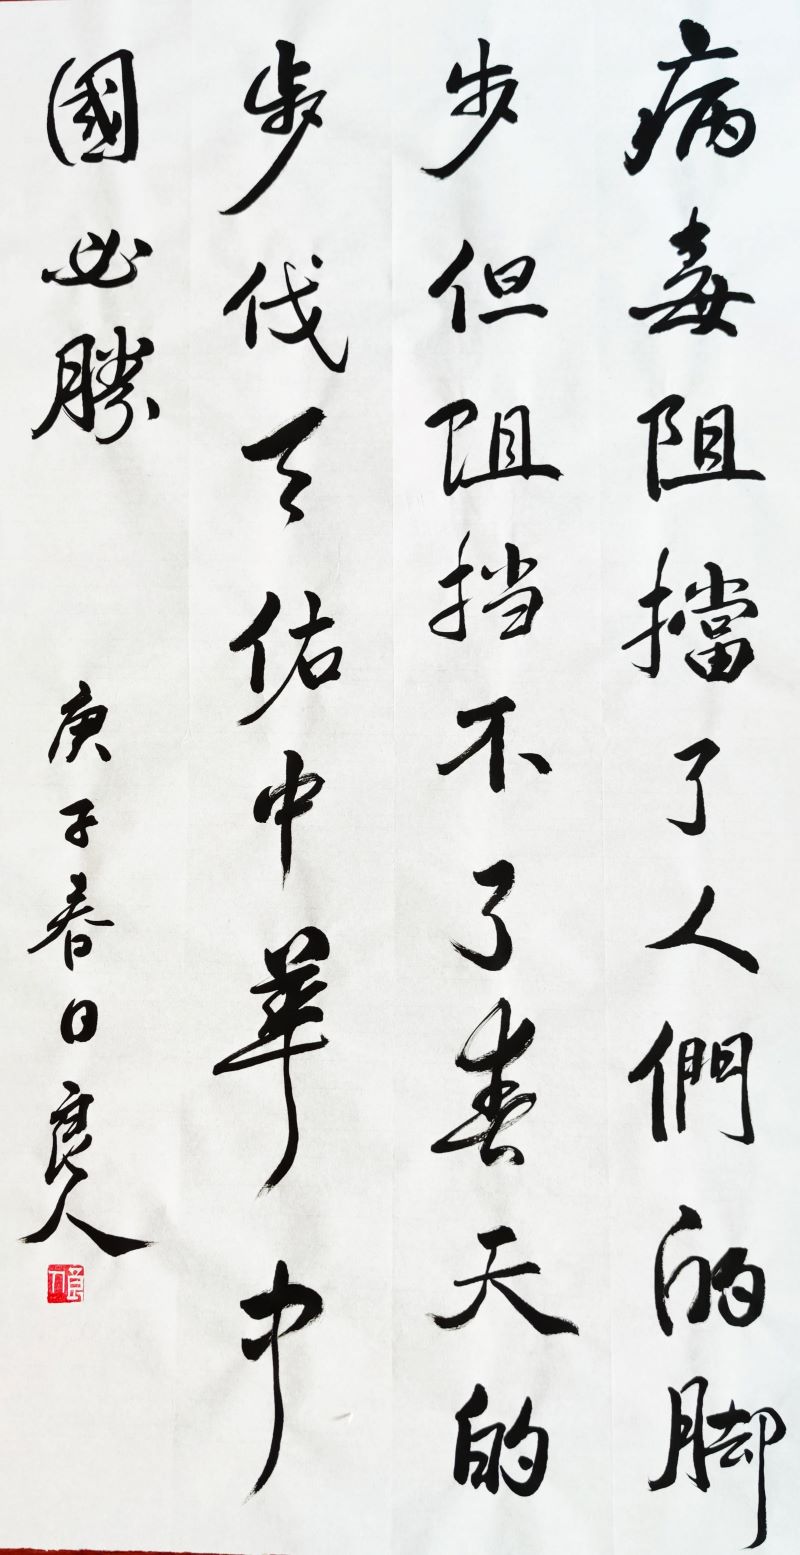 病毒阻擋了人們的脚
步但阻挡不了春天的
步伐天佑中華中
國必勝
庚子春日良人
良人